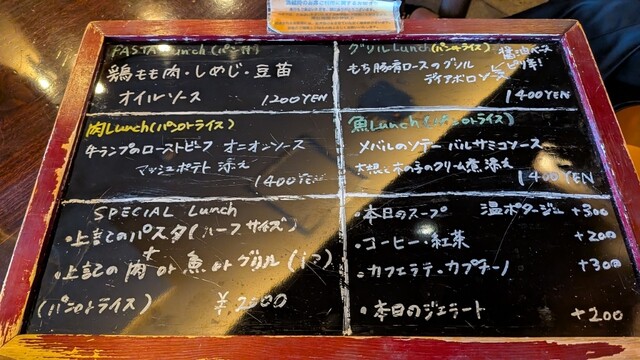 PASTA Lunch (パン付)
鶏もも肉・しめじ・豆苗
オイルソース
1200YEN
グリルLunch (パンorライス)
醤油ベース
ピリ辛!
もち豚肩ロースのグリル
ディアボロソース
1400YEN
肉Lunch (パンorライス)
牛ランプのローストビーフ オニオンソース
マッシュポテト 添え
1400YEN
魚Lunch (パンorライス)
メバルのソテー バルサミコソース
大根と木の子のクリーム煮 添え
1400YEN
SPECIAL Lunch
・上記のパスタ (ハーフサイズ)
+
・上記の肉 or 魚 or グリル
(パンorライス) ¥2000
・本日のスープ 温ポタージュ +300
・コーヒー・紅茶 +200
・カフェラテ・カプチーノ +300
・本日のジェラート +200